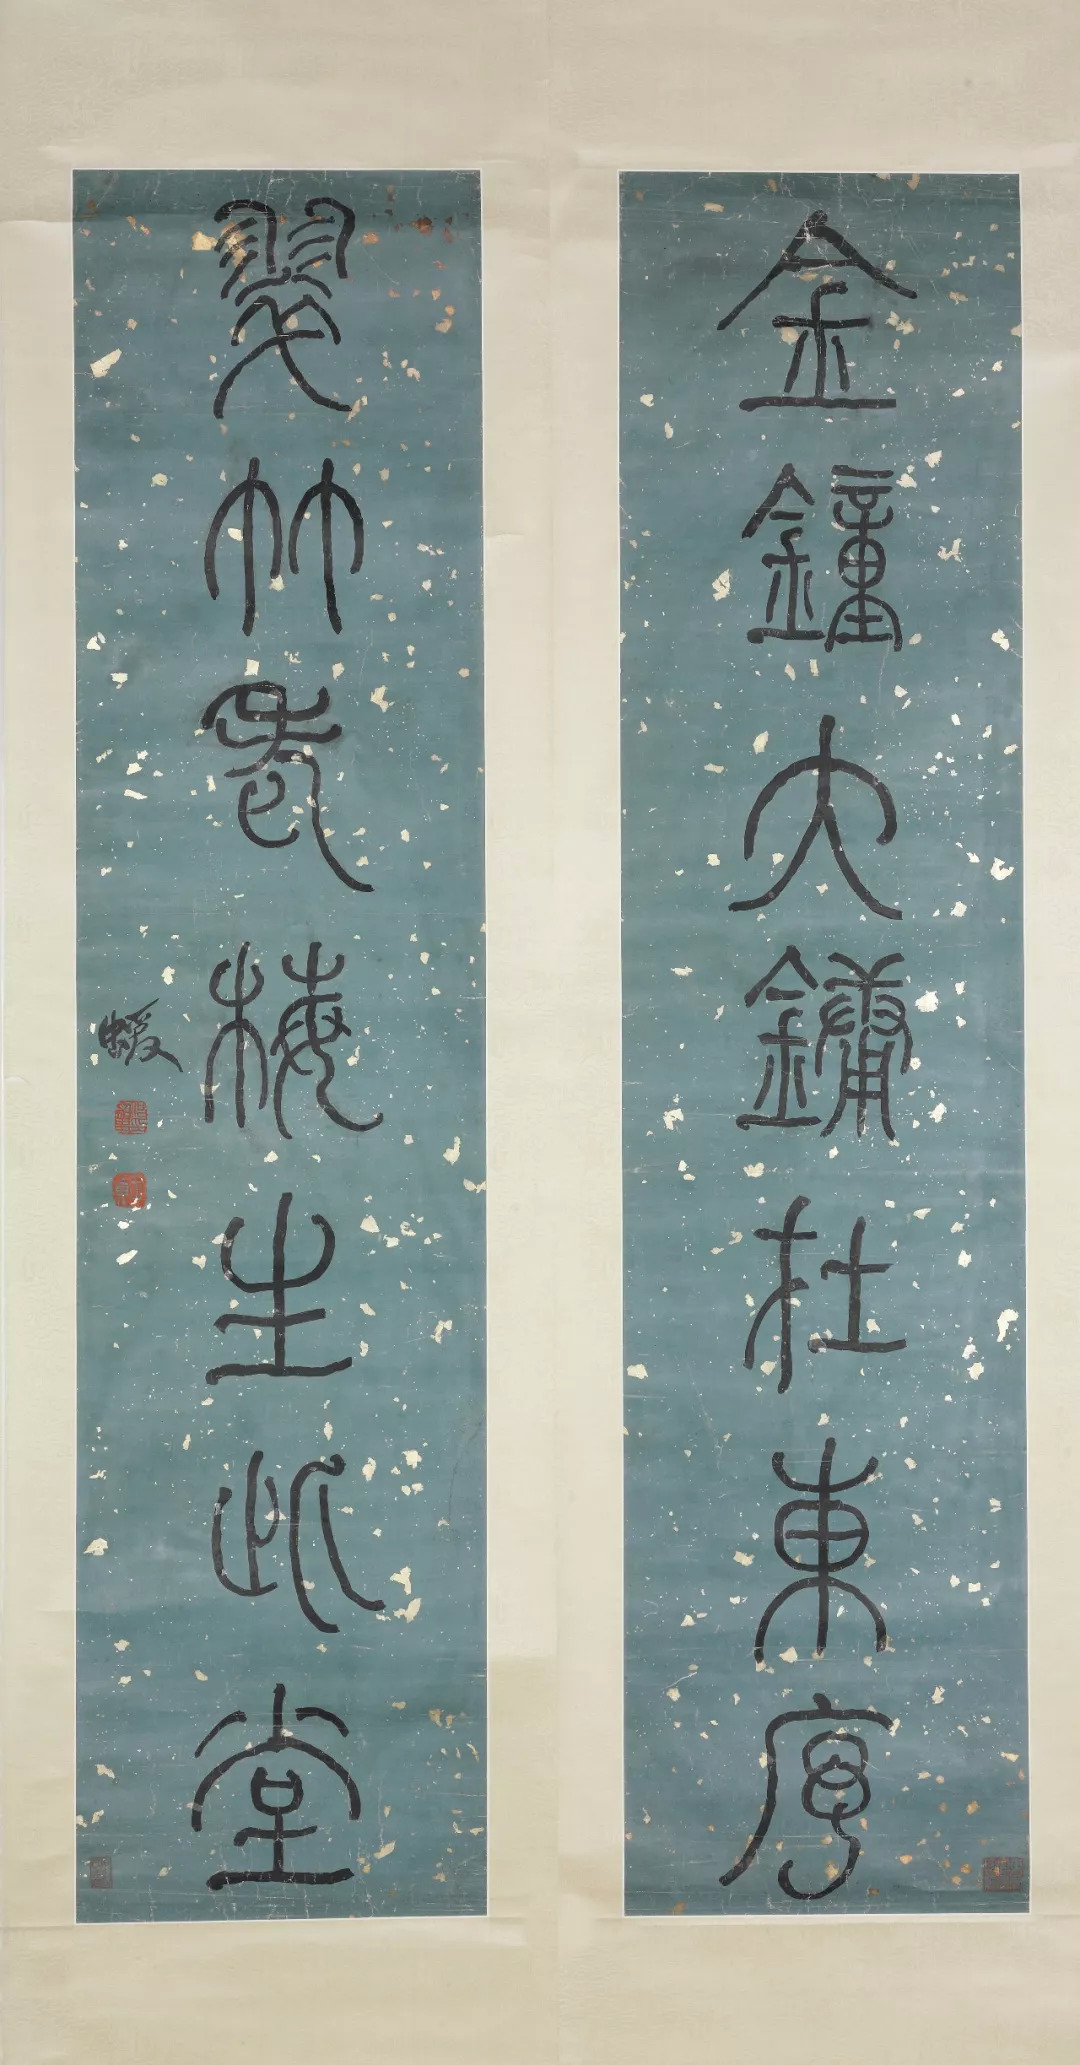 金鐘大鏞在東序
翠竹老梅生此堂
蝯